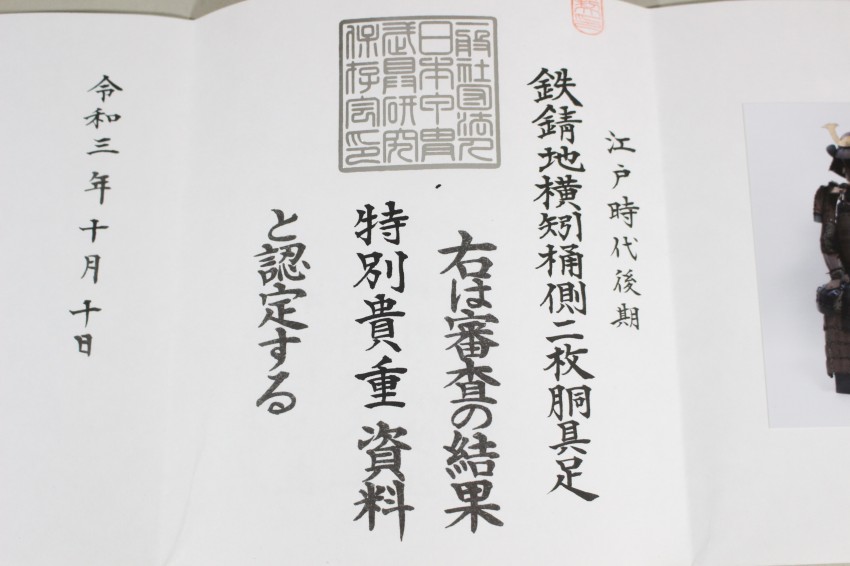 江戸時代後期
鉄錆地横矧桶側二枚胴具足
右は審査の結果
特別貴重資料
と認定する
令和三年十月十日
一般社団法人
日本甲冑
武具研究
保存会印